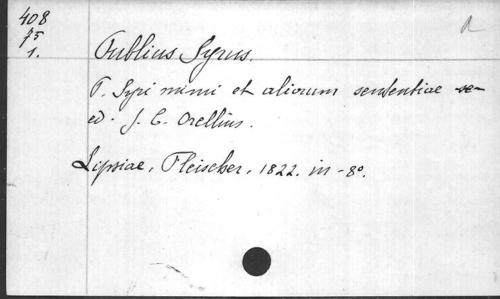 408
75
1.
Publius Syrus.
P. Syri mimi et aliorum sententiae
ed. J. C. Orellius.
Lipsiae, Fleischer, 1822. in -8o.